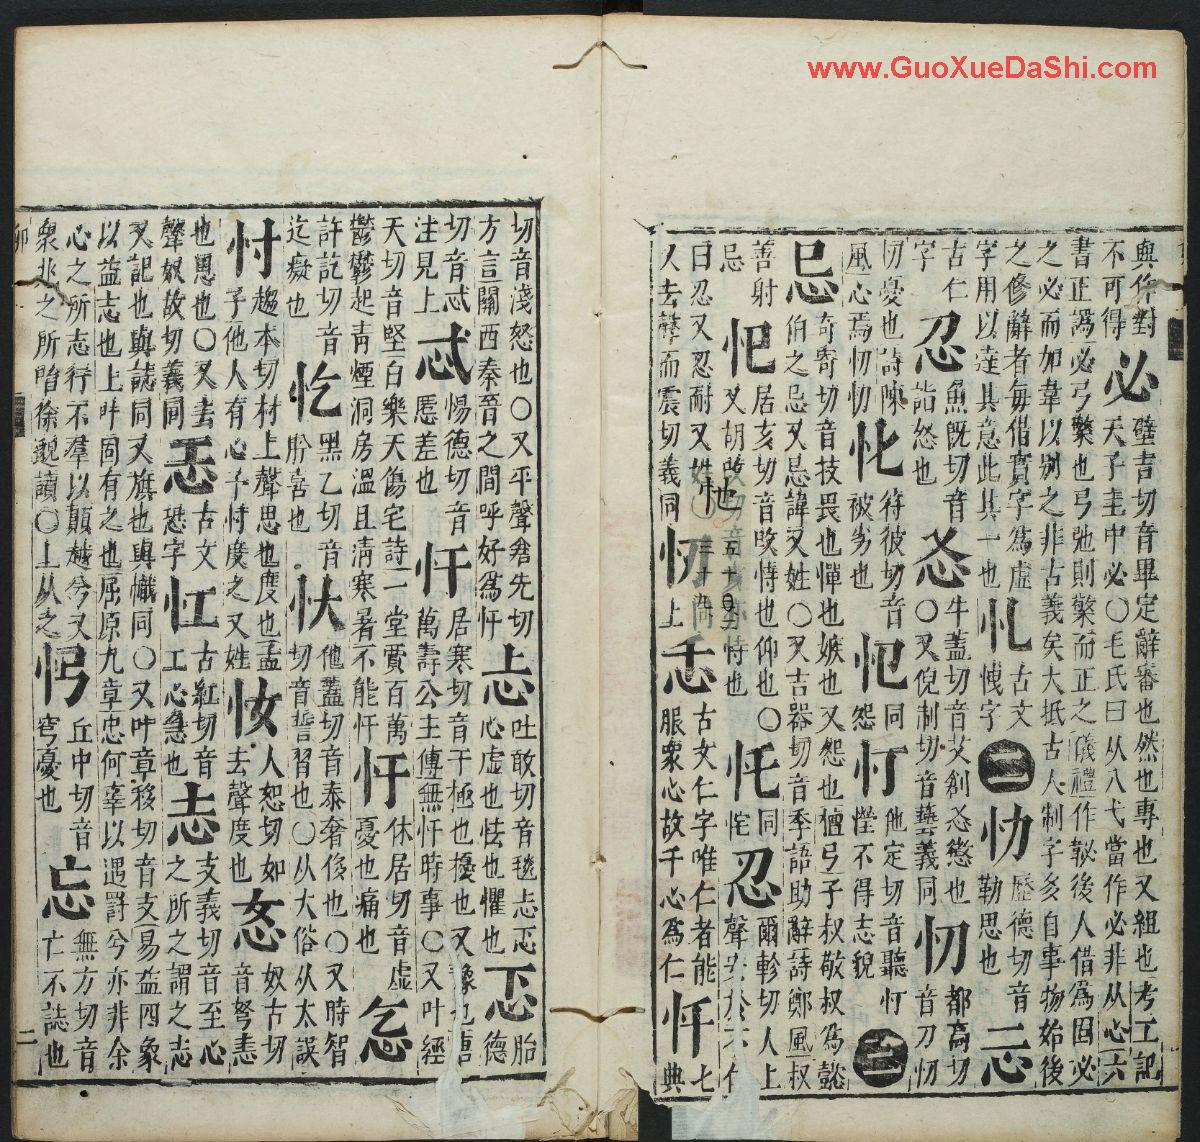 www.GuoXueDaShi.com
不可得必壁吉切音畢定辭審也然也專也又組也考工記
天子圭中必〇毛氏曰从八弋當作必非从心六
書正譌必弓檠也弓弛則檠而正之儀禮作䪐後人借爲固必
之必而加韋以别之非古義矣大抵古人制字多自事物始後
之修辭者每借實字爲虛
字用以達其意此其一也忋古文
古仁字忍魚旣切音
詣怒也
〇又倪制切音藝義同忉都高切
音刀忉
忉憂也詩陳
風心焉忉忉
符彼切音
被劣也
同
怨
他定切音聽忊
憆不得志貌
忌奇寄切音技畏也憚也嫉也又怨也檀弓子叔敬叔爲懿
伯之忌又忌諱又姓〇又吉器切音季語助辭詩鄭風叔
善射
忌
居亥切音
恃也仰也〇
又胡
恃也
同
忍爾軫切人上
聲
曰忍又忍耐又姓
人去聲而震切義同忉上忎古文仁字唯仁者能
服衆心故千心爲仁忏七
典
切音淺怒也〇又平聲倉先切
方言關西秦晉之間呼好爲忏忐吐敢切音毯忐忑
心虛也怯也懼也忑胎
德
切音忒
注見上忒惕德切音
慝差也忓居寒切音干極也擾也又
萬壽公主傅無忓時事〇又叶經
天切音堅白樂天傷宅詩一堂賈百萬
鬱鬱起靑煙洞房溫且淸寒暑不能忓忬休居切音虛
憂也痛也忥
許訖切音
迄癡也忔黑乙切音
肸喜也忕他蓋切音泰奢侈也〇又時智
切音誓習也〇从大俗从太誤
忖趨本切村上聲思也度也孟
子他人有心予忖度之又姓㤓人恕切如
去聲度也㤅奴古切
音弩恚
也恩也〇又去
聲奴故切義同恐古文
恐字㤨古紅切音
工心急也志支義切音至心
之所之謂之志
又記也與誌同又旗也與幟同〇又叶章移切音支易益四象
以益志也上叶固有之也屈原九章忠何辜以遇罸兮亦非余
心之所志行不羣以顚越兮又
衆兆之所咍徐邈讀〇上从之丘中切音
穹憂也忘無方切音
亡不誌也
二